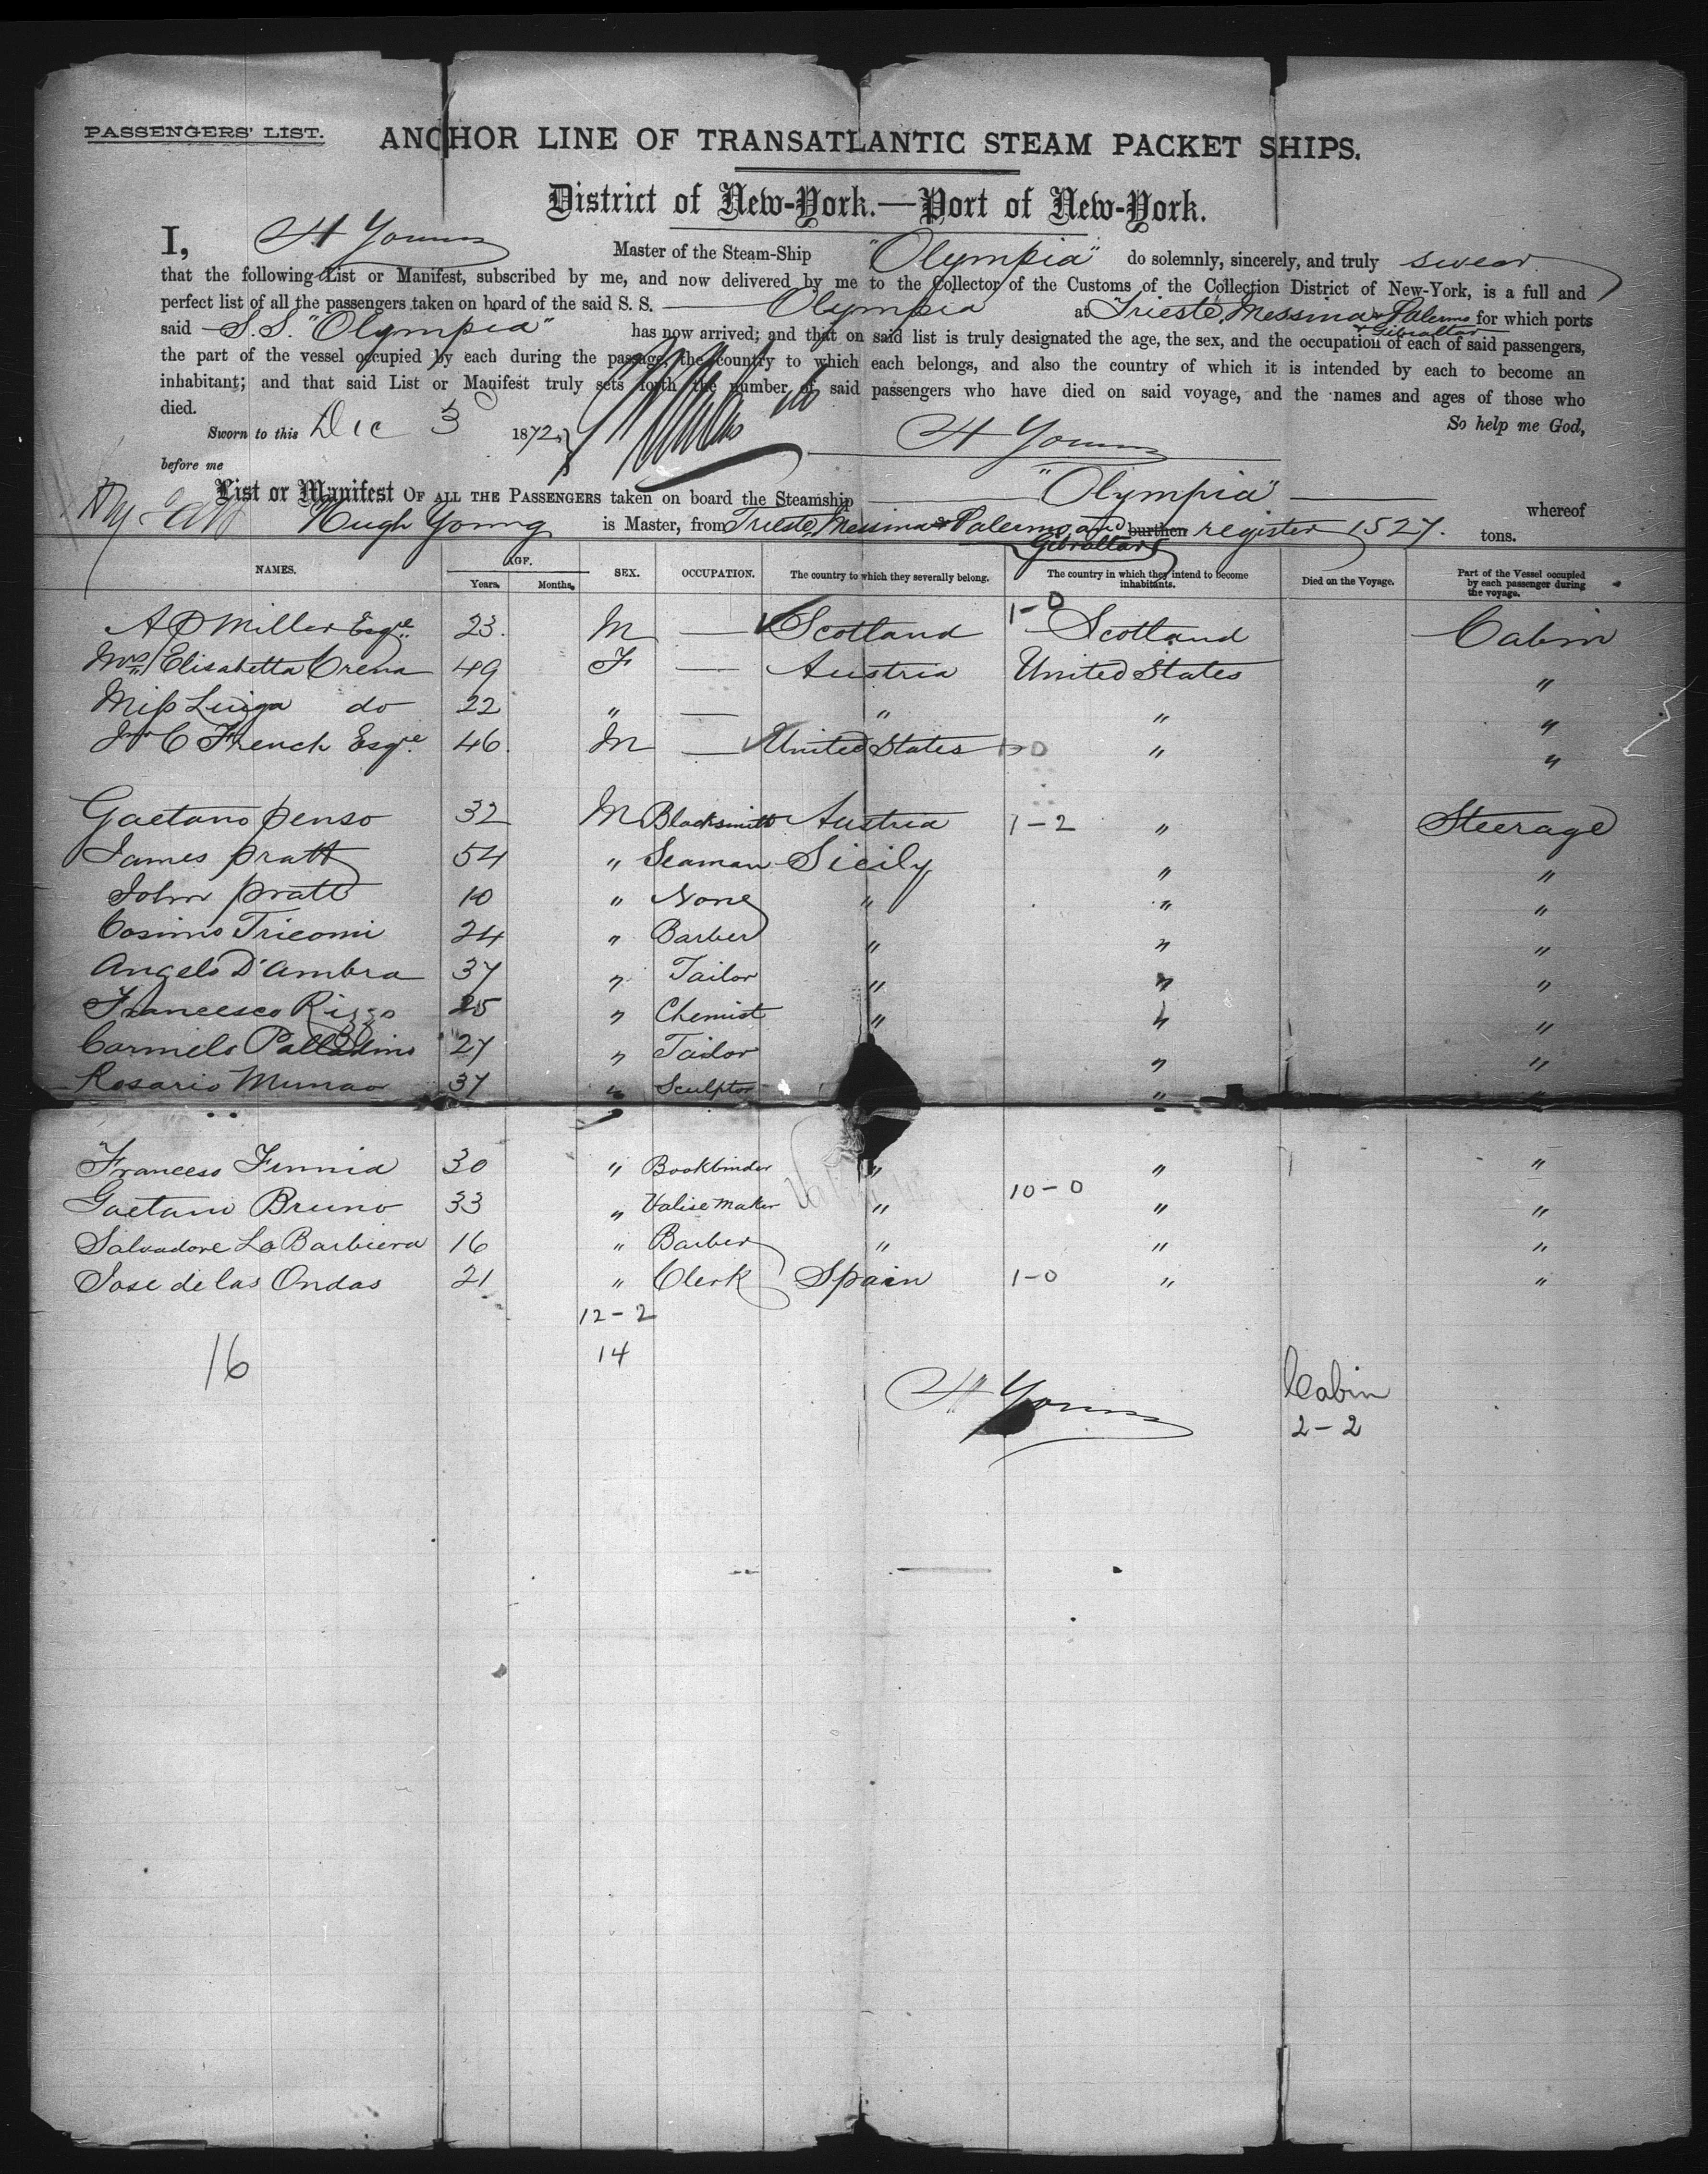 PASSENGERS' LIST.
ANCHOR LINE OF TRANSATLANTIC STEAM PACKET SHIPS.
District of New-York.—Port of New-York.
I, H Young Master of the Steam-Ship "Olympia" do solemnly, sincerely, and truly swear
that the following List or Manifest, subscribed by me, and now delivered by me to the Collector of the Customs of the Collection District of New-York, is a full and
perfect list of all the passengers taken on board of the said S. S. Olympia at Trieste, Messina & Palermo for which ports
& Gibraltar
said S.S. "Olympia" has now arrived; and that on said list is truly designated the age, the sex, and the occupation of each of said passengers,
the part of the vessel occupied by each during the passage, the country to which each belongs, and also the country of which it is intended by each to become an
inhabitant; and that said List or Manifest truly sets forth the number of said passengers who have died on said voyage, and the names and ages of those who
died. So help me God,
Sworn to this Dec 3 1872, H Young
before me
List or Manifest OF ALL THE PASSENGERS taken on board the Steamship "Olympia" whereof
Hugh Young is Master, from Trieste, Messina & Palermo and burthen register 1527. tons.
Gibraltar
NAMES. AGE. Years. Months. SEX. OCCUPATION. The country to which they severally belong. The country in which they intend to become inhabitants. Died on the Voyage. Part of the Vessel occupied by each passenger during the voyage.
A P Miller Esqre 23. M — Scotland 1-0 Scotland Cabin
Mrs Elisabetta Crena 49 F — Austria United States "
Miss Luiga do 22 " — " " "
Jno C French Esqre 46. M — United States 1-0 " "
Gaetano Penso 32 M Blacksmith Austria 1-2 " Steerage
James Pratt 54 " Seaman Sicily " "
John Pratt 10 " None " " "
Cosimo Tricomi 24 " Barber " " "
Angelo D'Ambra 37 " Tailor " " "
Francesco Rizzo 25 " Chemist " " "
Carmelo Palladino 27 " Tailor " "
Rosario Munao 37 " Sculptor " "
Francess Finnia 30 " Bookbinder " " "
Gaetano Bruno 33 " Valise Maker " 10-0 " "
Salvadore La Barbiera 16 " Barber " " "
Jose de las Ondas 21 " Clerk Spain 1-0 " "
12-2
16 14
H Young
Cabin
2-2